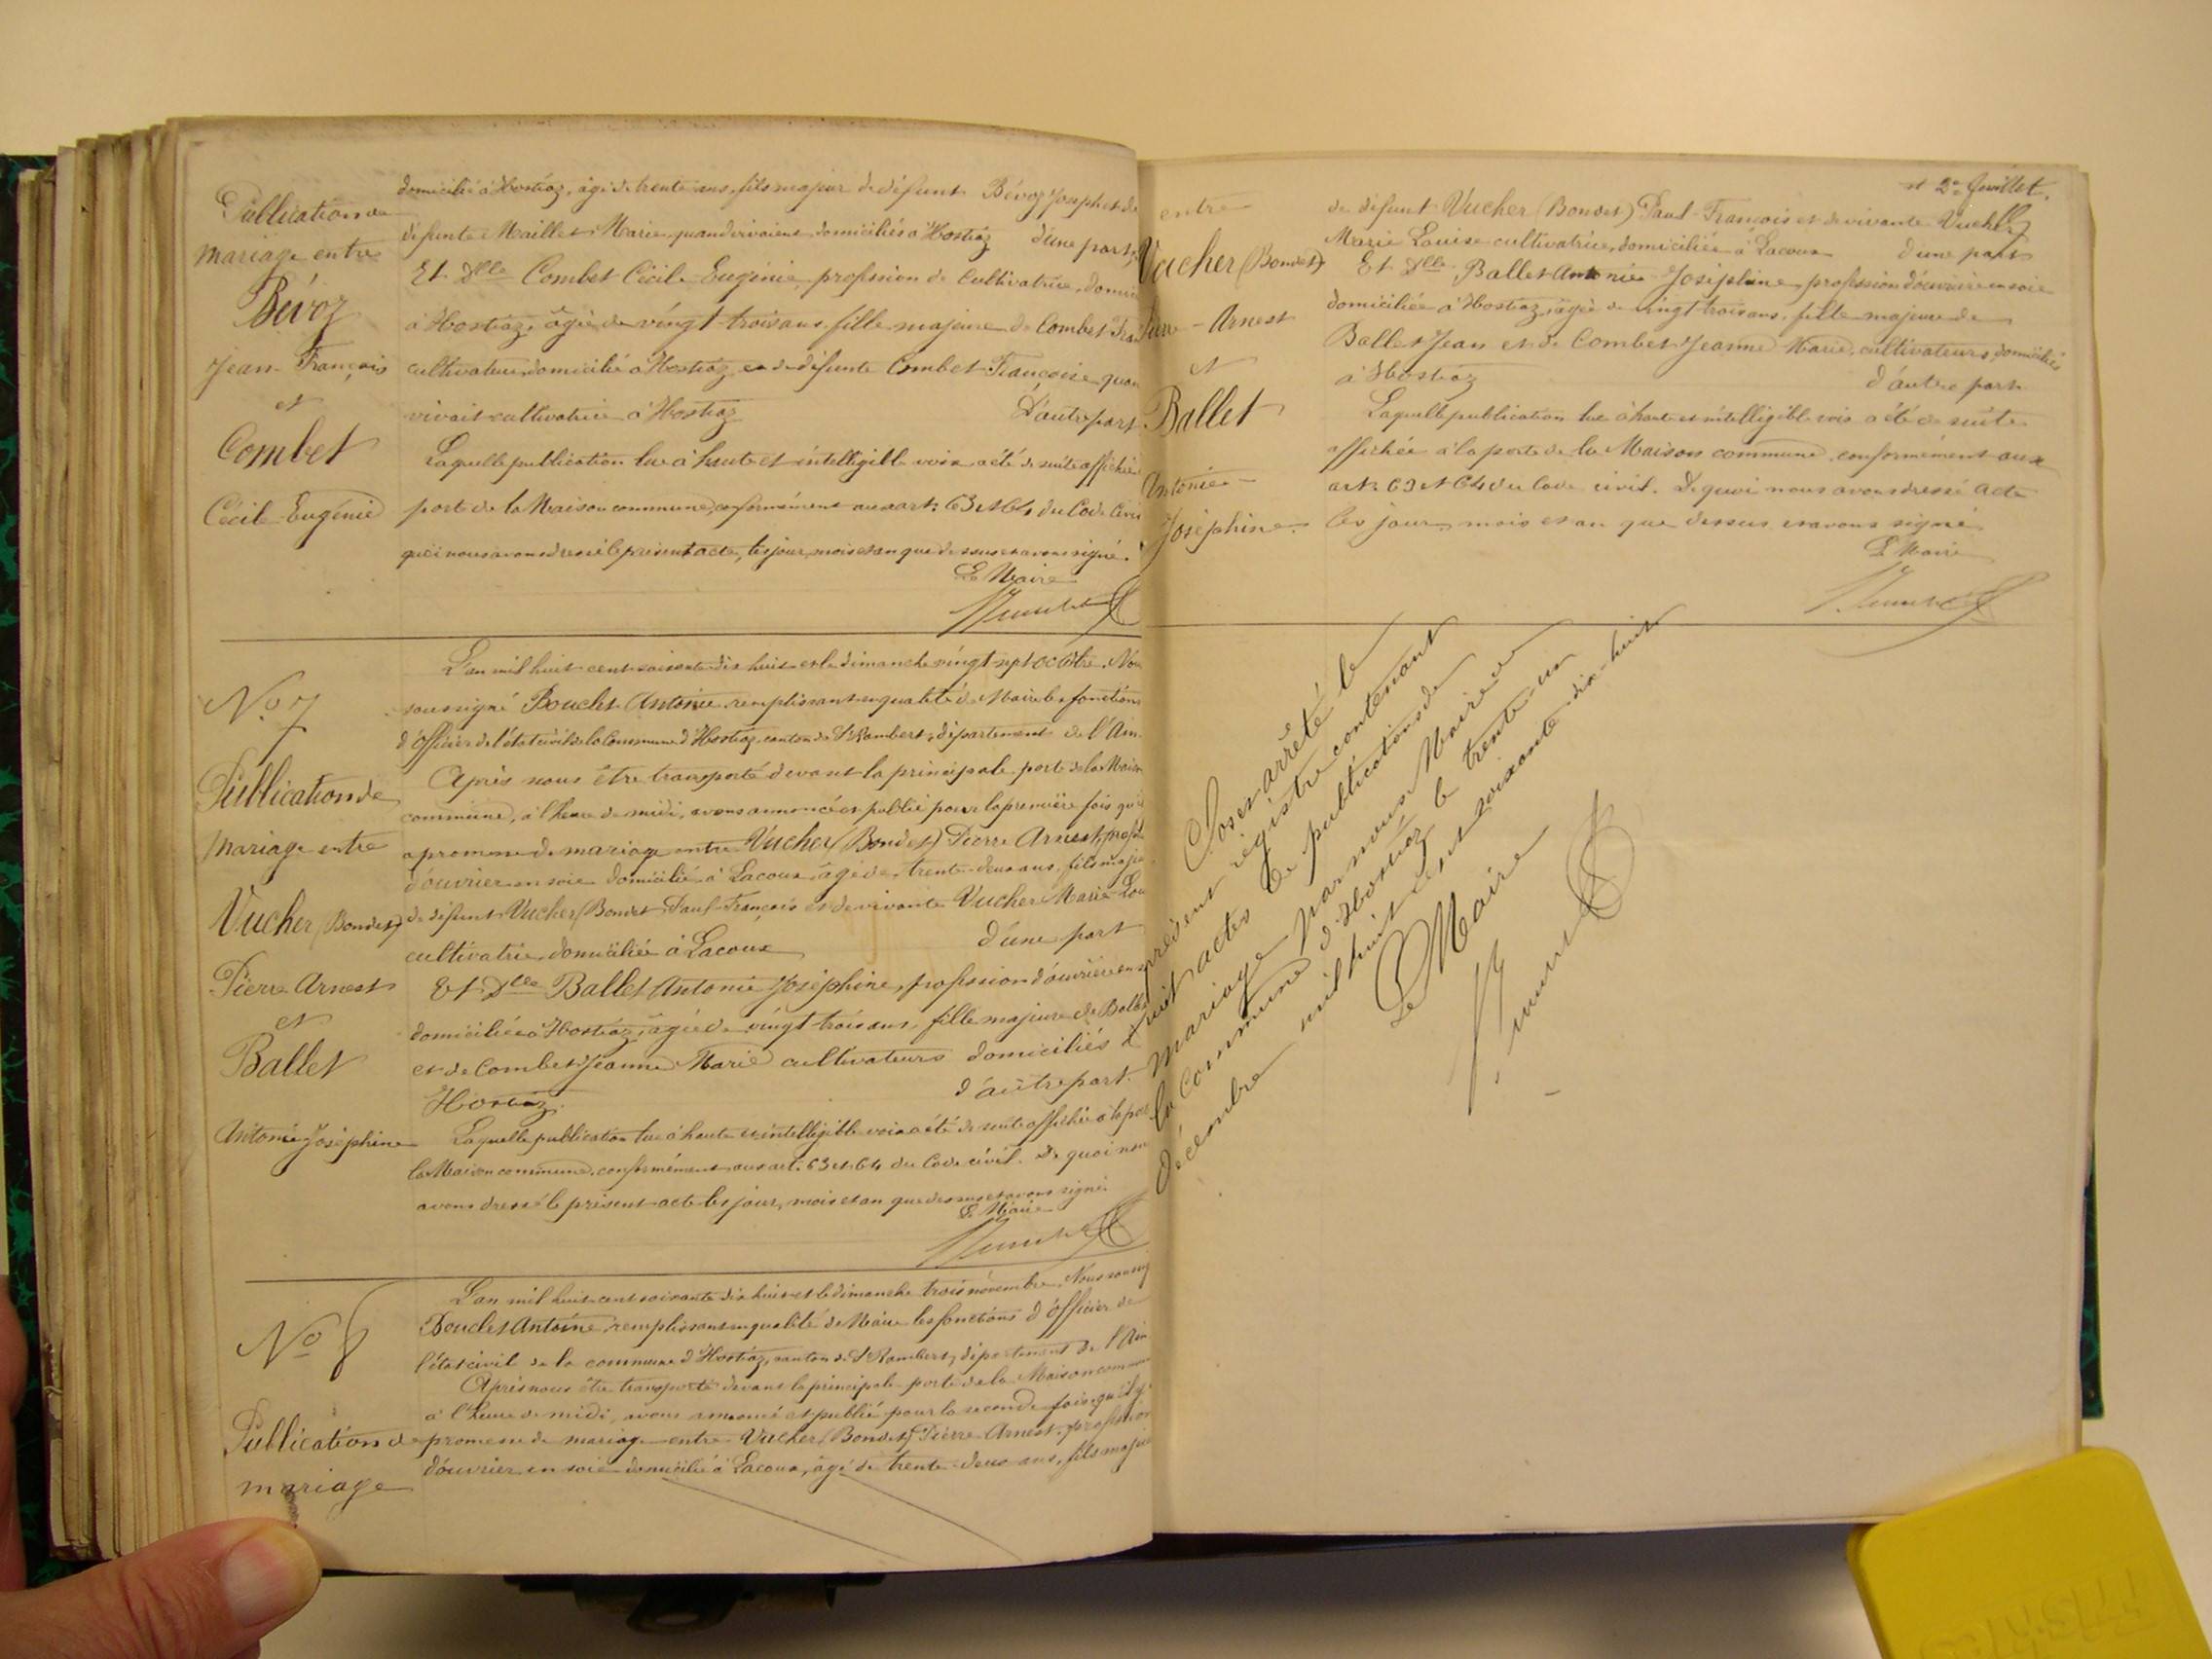 Publication de
mariage entre
Bévoz
Jean-François
et
Combet
Cécile Eugénie
domicilié à Hostiaz, âgé de trente ans, fils majeur de défunt Bévoz Joseph et de
défunte Maillet Marie, quand vivaient domiciliés à Hostiaz d'une part,
Et Dlle Combet Cécile Eugénie, profession de cultivatrice, domici
à Hostiaz, âgée de vingt-trois ans, fille majeure de Combet Fran
cultivateur domicilié à Hostiaz et de défunte Combet Françoise quan
vivait cultivatrice à Hostiaz D'autre part
Laquelle publication lue à haute et intelligible voix a été de suite affichée
porte de la Maison commune, conformément aux art: 63 et 64 du Code Civil
quoi nous avons dressé le présent acte, les jour, mois et an que dessus et avons signé.
Le Maire
No 7
Publication de
mariage entre
Vucher (Bondet)
Pierre Arnest
et
Ballet
Antonie Joséphine
L'an mil huit cent soixante dix huit et le dimanche vingt sept octobre. Nou
soussigné Bouchet Antoine remplissant en qualité de Maire les fonctions
d'officier de l'état civil de la Commune d'Hostiaz, canton de St Rambert, département de l'Ain.
Après nous être transporté devant la principale porte de la Maison
commune, à l'heure de midi, avons annoncé et publié pour la première fois qu'il
a promesse de mariage entre Vucher (Bondet) Pierre Arnest, profe
d'ouvrier en soie domicilié à Lacoux, âgé de trente-deux ans, fils maje
de défunt Vucher (Bondet) Paul-François et de vivante Vucher Marie-Lou
cultivatrice, domiciliée à Lacoux d'une part
Et Dlle Ballet Antonie Joséphine, profession d'ouvrière en s
domiciliée à Hostiaz, âgée de vingt trois ans, fille majeure de Balle
et de Combet Jeanne Marie cultivateurs domiciliés à
Hostiaz. d'autre part.
Laquelle publication lue à haute et intelligible voix a été de suite affichée à la por
la Maison commune, conformément aux art: 63 et 64 du Code civil. De quoi nous
avons dressé le présent acte les jour, mois et an que dessus et avons signé.
Le Maire
No 8
Publication de
mariage
L'an mil huit cent soixante dix huit et le dimanche trois novembre. Nous soussig
Bouchet Antoine, remplissant en qualité de Maire les fonctions d'officier de
l'état civil de la commune d'Hostiaz, canton de St Rambert, département de l'Ain
Après nous être transporté devant la principale porte de la Maison commun
à l'heure de midi, avons annoncé et publié pour la seconde fois qu'il y
promesse de mariage entre Vucher (Bondet) Pierre-Arnest, profession
d'ouvrier en soie domicilié à Lacoux, âgé de trente-deux ans, fils majeu
et 2e feuillet.
entre
Vucher (Bondet)
Pierre-Arnest
et
Ballet
Antonie
Joséphine
de défunt Vucher (Bondet) Paul-François et de vivante Vucher
Marie Louise cultivatrice, domiciliée à Lacoux d'une part
Et Dlle Ballet Antonie Joséphine profession d'ouvrière en soie
domiciliée à Hostiaz, âgée de vingt-trois ans, fille majeure de
Ballet Jean et de Combet Jeanne Marie, cultivateurs, domiciliés
à Hostiaz d'autre part
Laquelle publication lue à haute et intelligible voix a été de suite
affichée à la porte de la Maison commune conformément aux
art. 63 et 64 du Code civil. De quoi nous avons dressé acte
les jour, mois et an que dessus et avons signé
Le Maire
Clos et arrêté le
présent registre contenant
huit actes de publications de
mariage par nous Maire de
la Commune d'Hostiaz le trente un
décembre mil huit cent soixante dix-huit
Le Maire